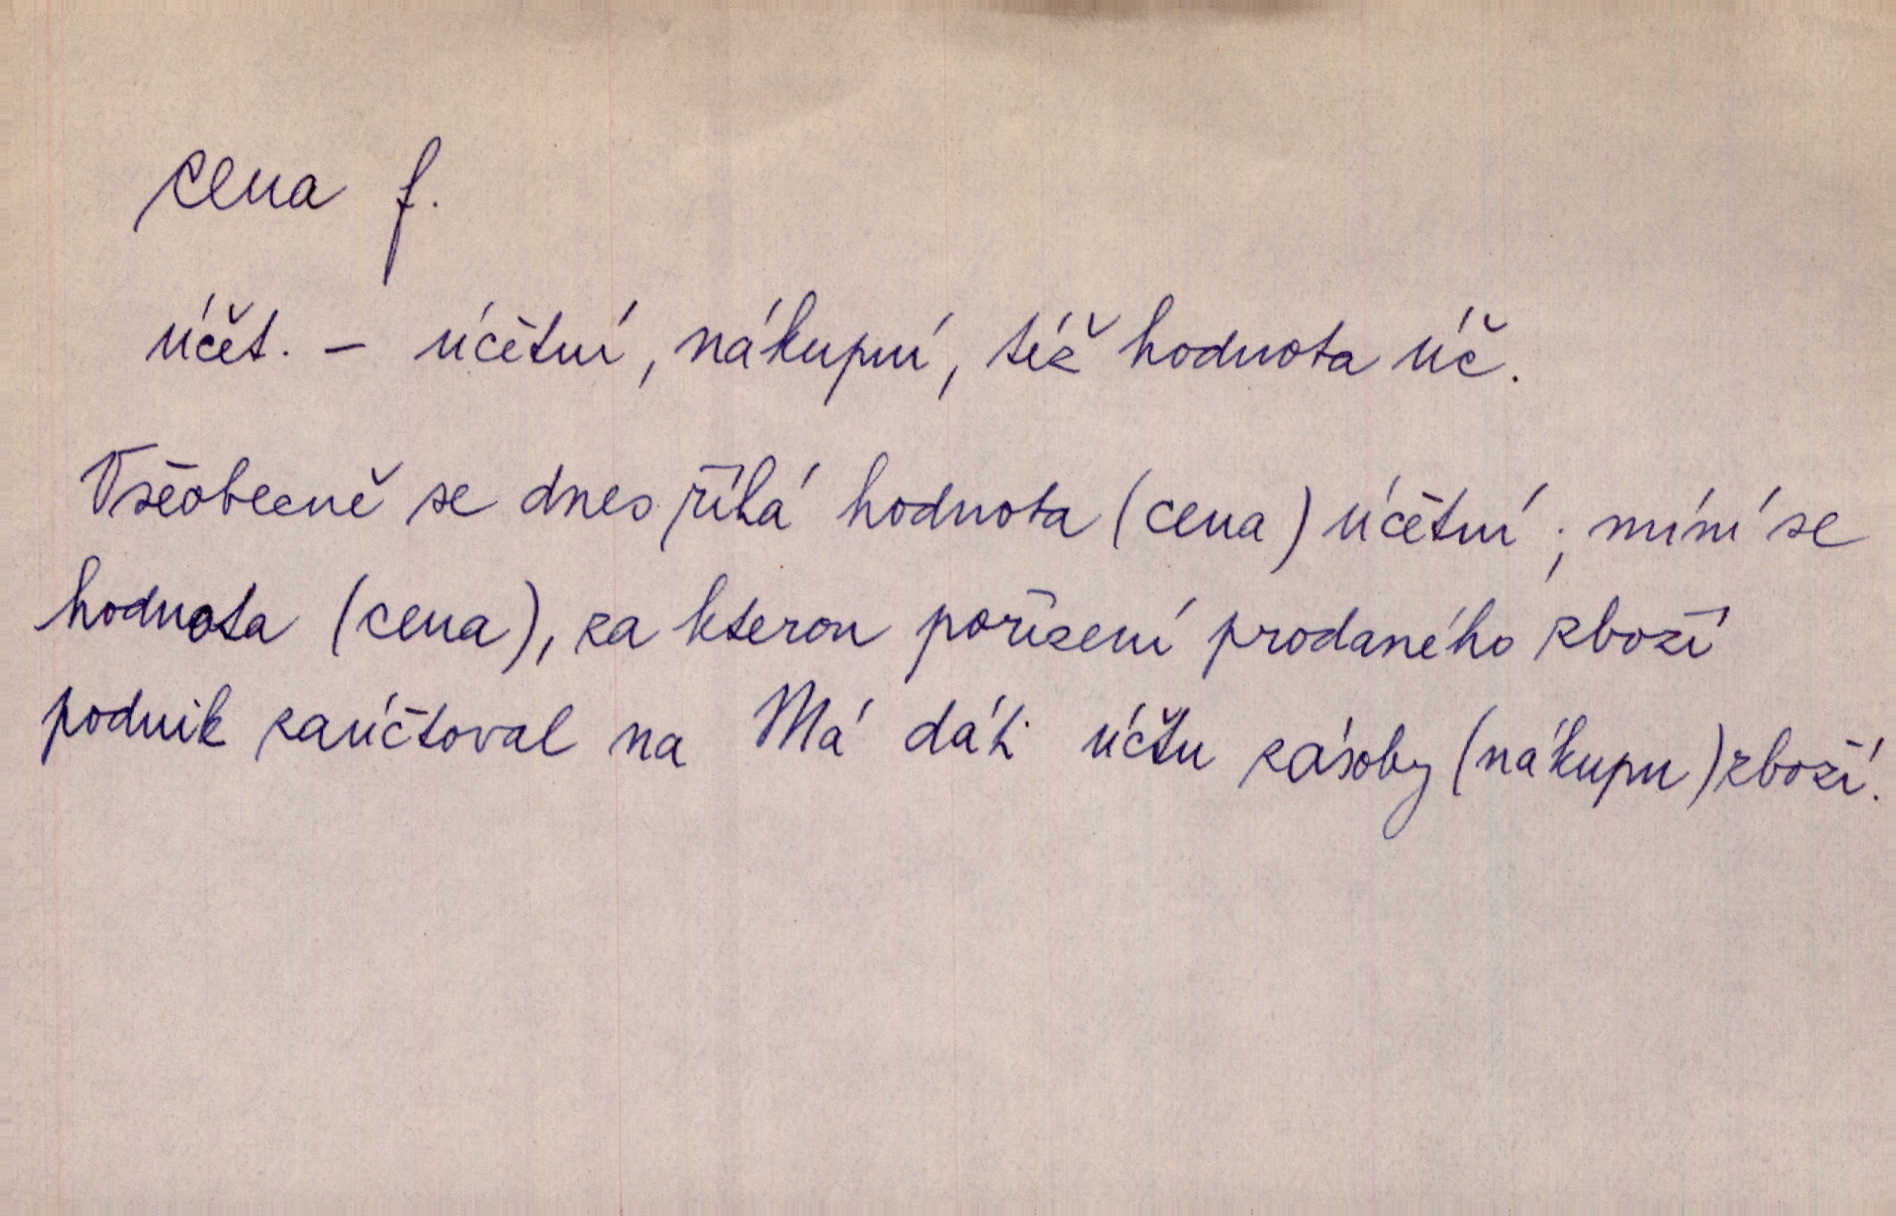 cena f.
účet. - účetní, nákupní, též hodnota úč.
Všeobecně se dnes říká hodnota (cena) účetní; míní se
hodnota (cena), za kterou pořízení prodaného zboží
podnik zaúčtoval na Má dáti účtu zásoby (nákupu) zboží.